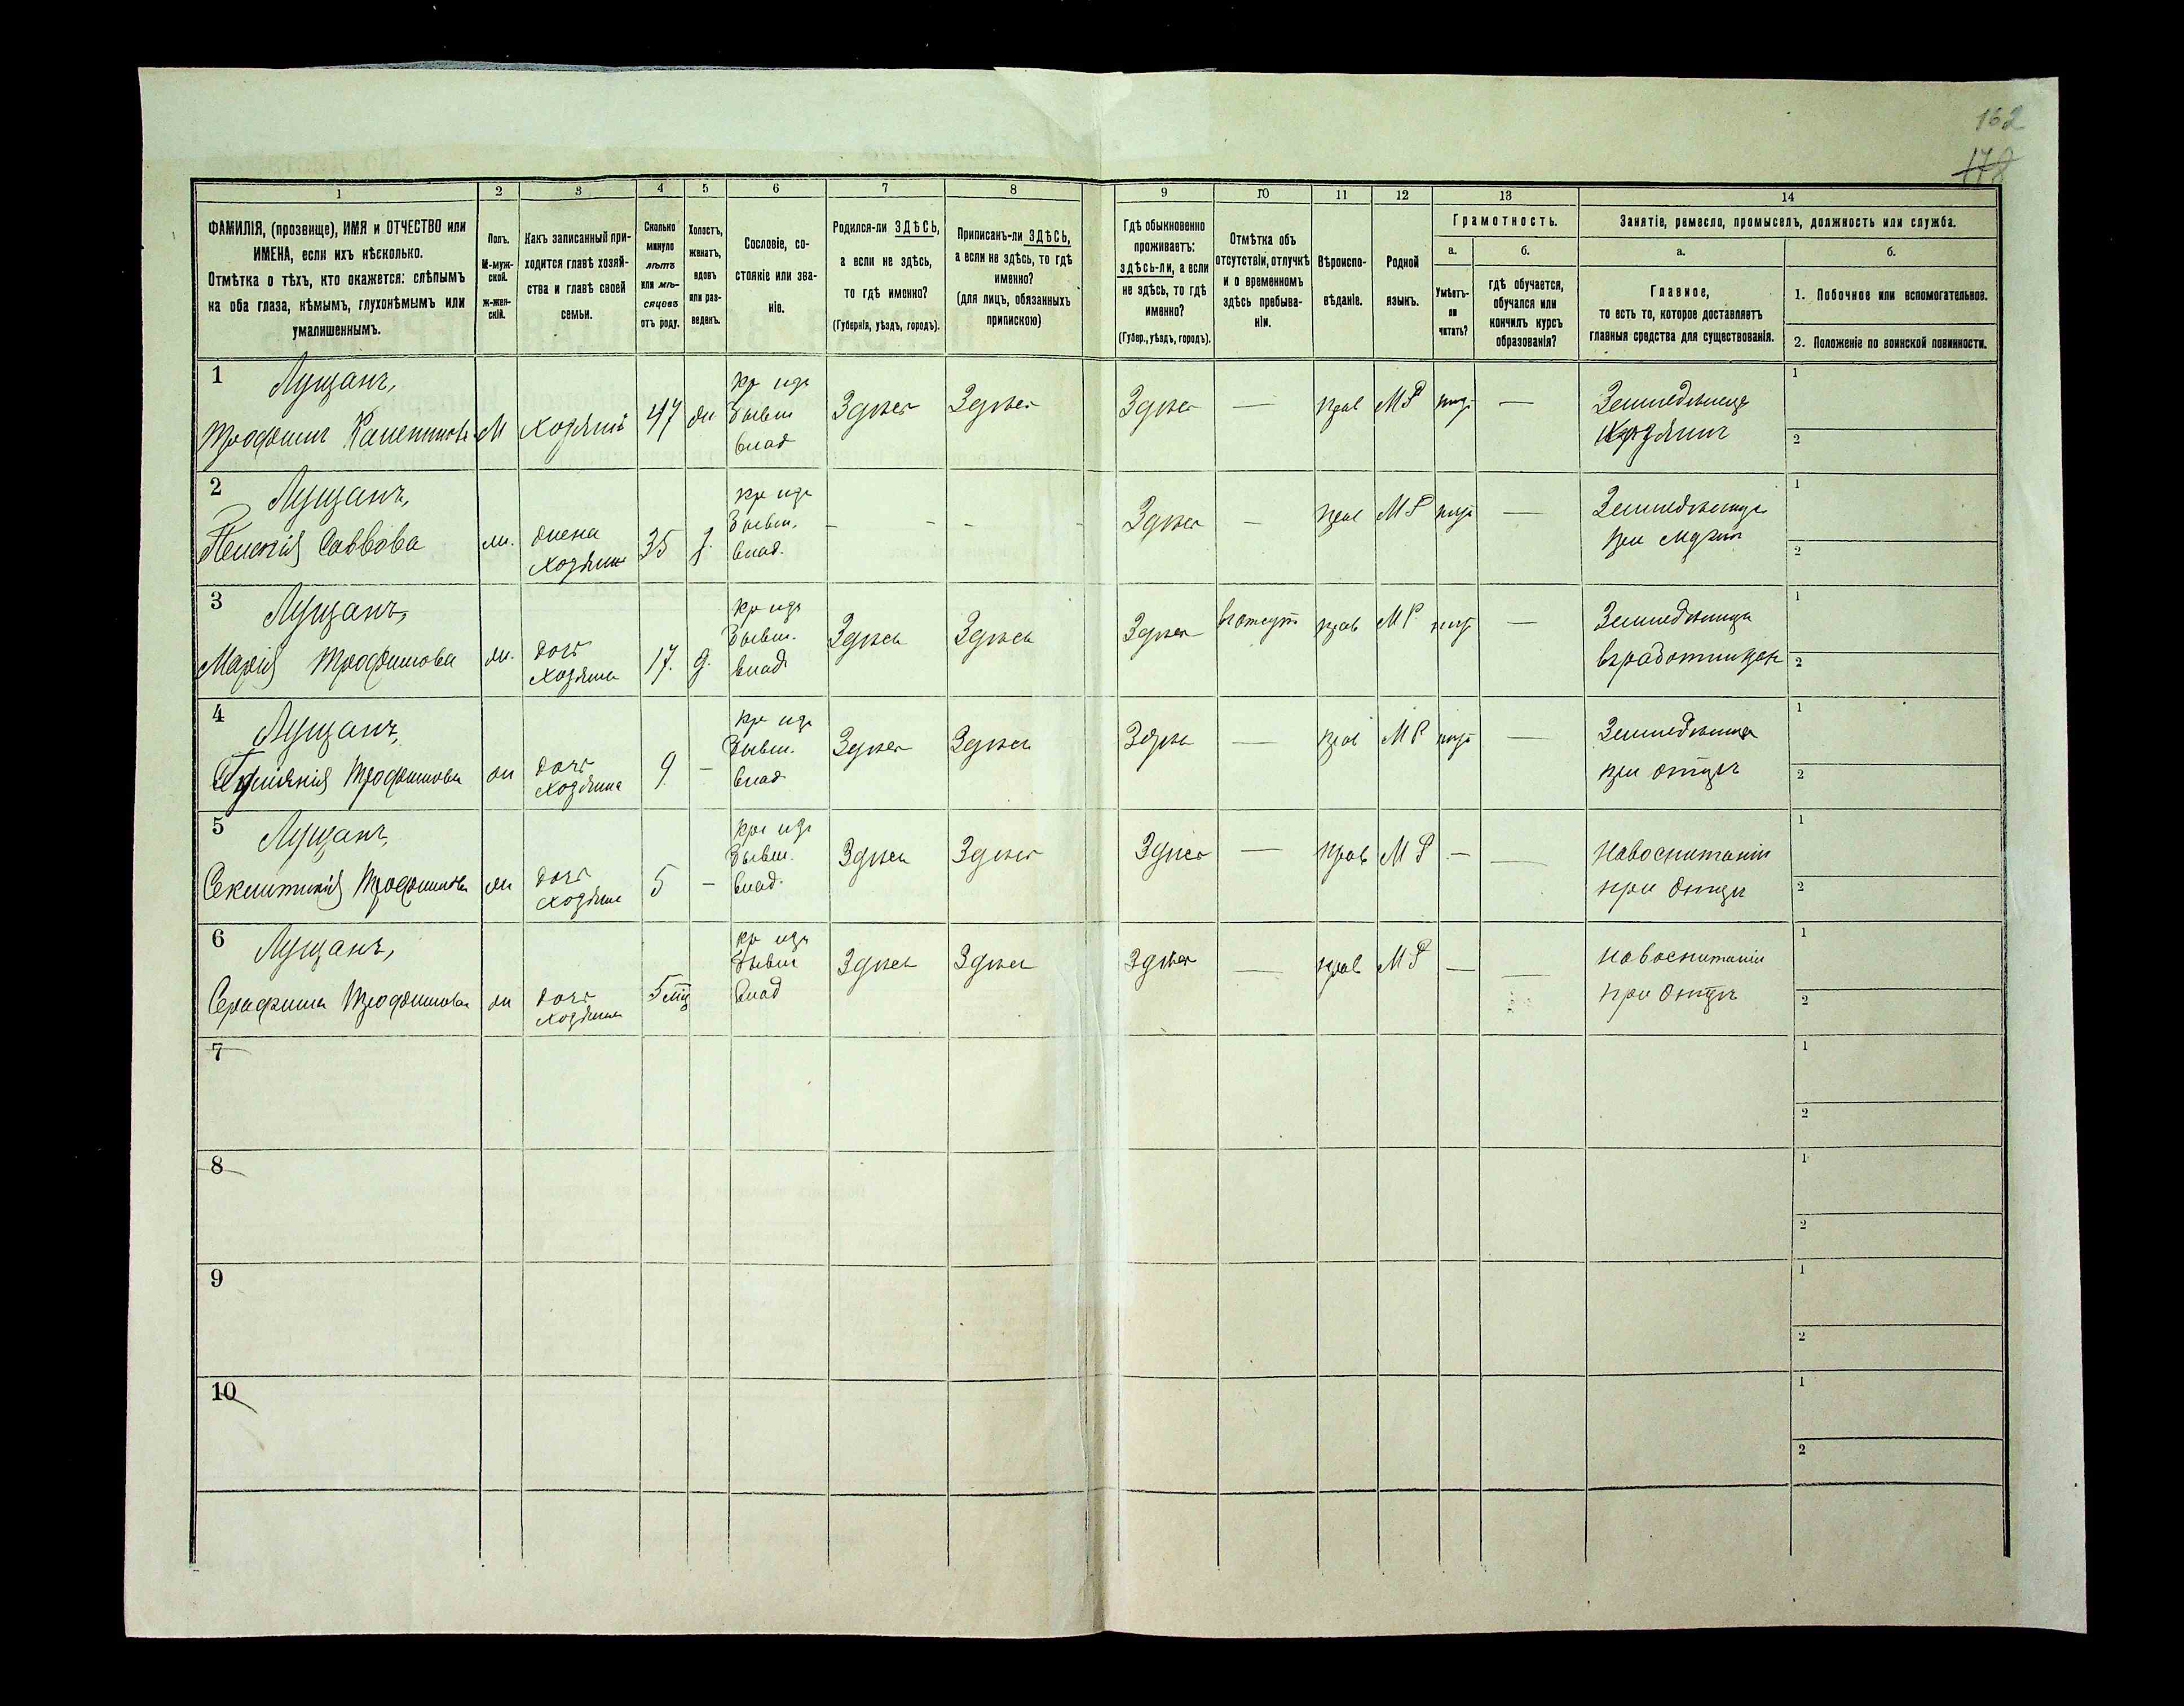 162
178
1
2
3
4
5
6
7
8
9
10
11
12
13
14
ФАМИЛІЯ, (прозвище), ИМЯ и ОТЧЕСТВО или
ИМЕНА, если ихъ нѣсколько.
Отмѣтка о тѣхъ, кто окажется: слѣпымъ
на оба глаза, нѣмымъ, глухонѣмымъ или
умалишеннымъ.
Полъ.
М-муж-
ской.
ж-жен-
скій.
Какъ записанный при-
ходится главѣ хозяй-
ства и главѣ своей
семьи.
Сколько
минуло
лѣтъ
или мѣ-
сяцевъ
отъ роду.
Холостъ,
женатъ,
вдовъ
или раз-
веденъ.
Сословіе, со-
стояніе или зва-
ніе.
Родился-ли ЗДѢСЬ,
а если не здѣсь,
то гдѣ именно?
(Губернія, уѣздъ, городъ).
Приписанъ-ли ЗДѢСЬ,
а если не здѣсь, то гдѣ
именно?
(для лицъ, обязанныхъ
припискою)
Гдѣ обыкновенно
проживаетъ:
здѣсь-ли, а если
не здѣсь, то гдѣ
именно?
(Губер., уѣздъ, городъ).
Отмѣтка объ
отсутствіи, отлучкѣ
и о временномъ
здѣсь пребыва-
ніи.
Вѣроиспо-
вѣданіе.
Родной
языкъ.
Грамотность.
а.
Умѣетъ-
ли
читать?
б.
гдѣ обучается,
обучался или
кончилъ курсъ
образованія?
Занятіе, ремесло, промыселъ, должность или служба.
а.
Главное,
то есть то, которое доставляетъ
главныя средства для существованія.
б.
1. Побочное или вспомогательное.
2. Положеніе по воинской повинности.
1
Лущанъ,
Трофимъ
М
хозяинъ
47
жн
кр изъ
бывш
влад
Здѣсь
Здѣсь
Здѣсь
—
прав
МР
нѣтъ
—
Земледѣлецъ
хозяинъ
1
2
2
Лущанъ,
Саввова
жн.
жена
хозяина
35
з.
кр изъ
бывш.
влад.
-
-
-
-
Здѣсь
—
прав
МР
нѣтъ
—
Земледѣлица
при мужѣ
1
2
3
Лущанъ,
Марія Трофимова
жн.
дочь
хозяина
17.
д.
кр изъ
бывш.
влад
Здѣсь
Здѣсь
Здѣсь
въ отсут
прав
МР
нѣтъ
—
Земледѣлица
въ работницах
1
2
4
Лущанъ,
Трофимова
жн
дочь
хозяина
9
—
кр изъ
бывш.
влад
Здѣсь
Здѣсь
Здѣсь
—
прав
МР
нѣтъ
—
Земледѣлица
при отцѣ
1
2
5
Лущанъ,
Трофимова
жн
дочь
хозяина
5
—
кр изъ
бывш.
влад.
Здѣсь
Здѣсь
Здѣсь
—
прав
МР
—
—
На воспитаніи
при отцѣ
1
2
6
Лущанъ,
Серафима Трофимова
жн
дочь
хозяина
5 мц
кр изъ
бывш
влад
Здѣсь
Здѣсь
Здѣсь
—
прав
МР
—
—
На воспитаніи
при отцѣ
1
2
7
1
2
8
1
2
9
1
2
10
1
2